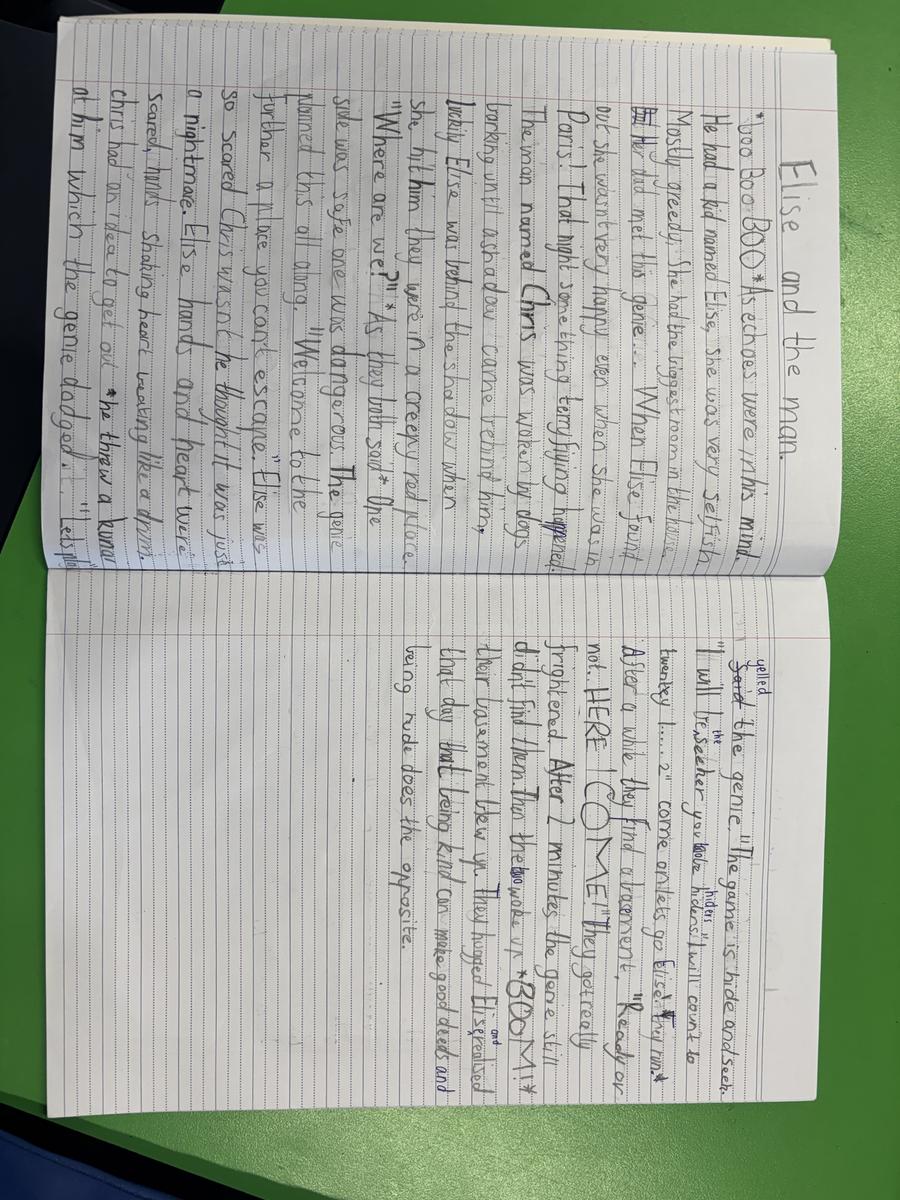 Elise and the man.
"boo Boo BOO* As echoes were in his mind.
He had a kid named Elise, She was very selfish
Mostly greedy. She had the biggest room in the house.
Her dad met this genie... When Elise found
out she wasn't very happy even when she was in
Paris! That night something terryfiying happened.
The man named Chris was woken by dogs
barking until a shadow came behind him,
luckily Elise was behind the shadow when
she hit him they were in a creepy red place.
"Where are we?" *As they both said* One
side was safe one was dangerous. The genie
planned this all along. "Welcome to the
further a place you can't escape." Elise was
so scared Chris wasn't he thought it was just
a nightmare. Elise hands and heart were
scared, hands shaking heart beating like a drum.
chris had an idea to get out *he threw a kunai
at him which the genie dodged it. "Lets play"
yelled
said the genie. "The game is hide and seek.
"I will be the seeker you hiders." I will count to
twentey 1...... 2" come on lets go Elise! *They run.*
After a while they find a basement, "Ready or
not.. HERE I COME!" They got really
frightened. After 2 minutes the genie still
didn't find them. Then the two woke up *BOOM!*
their basement blew up. They hugged Elise and realised
that day that being kind can make good deeds and
being rude does the opposite.